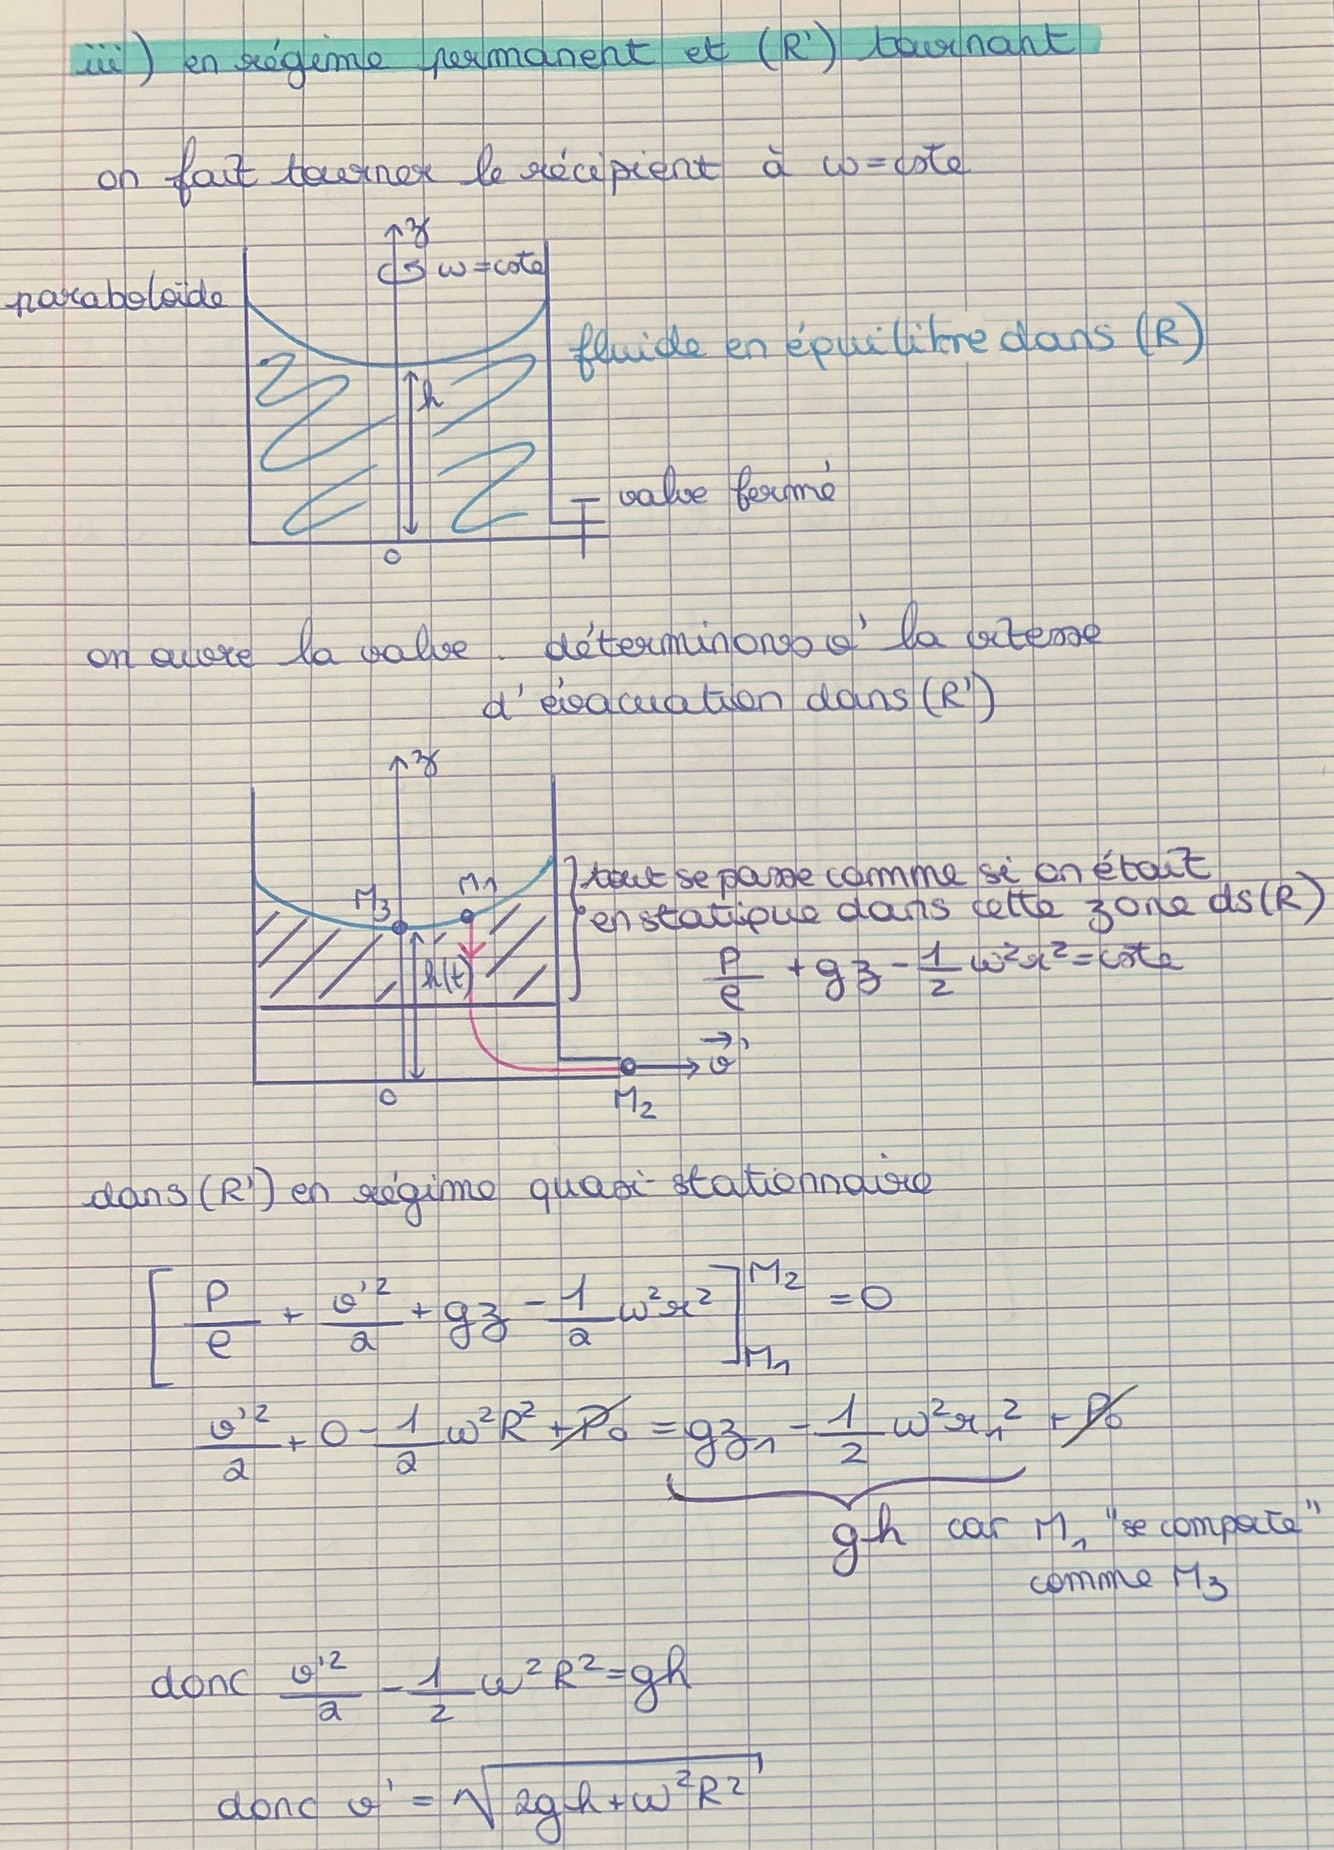 iii) en régime permanent et (R') tournant
on fait tourner le récipient à ω = cste
z
ω = cste
paraboloïde
fluide en équilibre dans (R)
h
valve fermé
O
on ouvre la valve. déterminons v' la vitesse
d'évacuation dans (R')
z
M₃ M₁
tout se passe comme si on était
en statique dans cette zone ds (R)
h(t)
P/ρ + gz - 1/2 ω²r² = cste
v⃗'
O
M₂
dans (R') en régime quasi-stationnaire
[P/ρ + v'²/2 + gz - 1/2 ω²r²]_M₁^M₂ = 0
v'²/2 + 0 - 1/2 ω²R² + P₀ = gz₁ - 1/2 ω²r₁² + P₀
gh car M₁ "se comporte"
comme M₃
donc v'²/2 - 1/2 ω²R² = gh
donc v' = √(2gh + ω²R²)